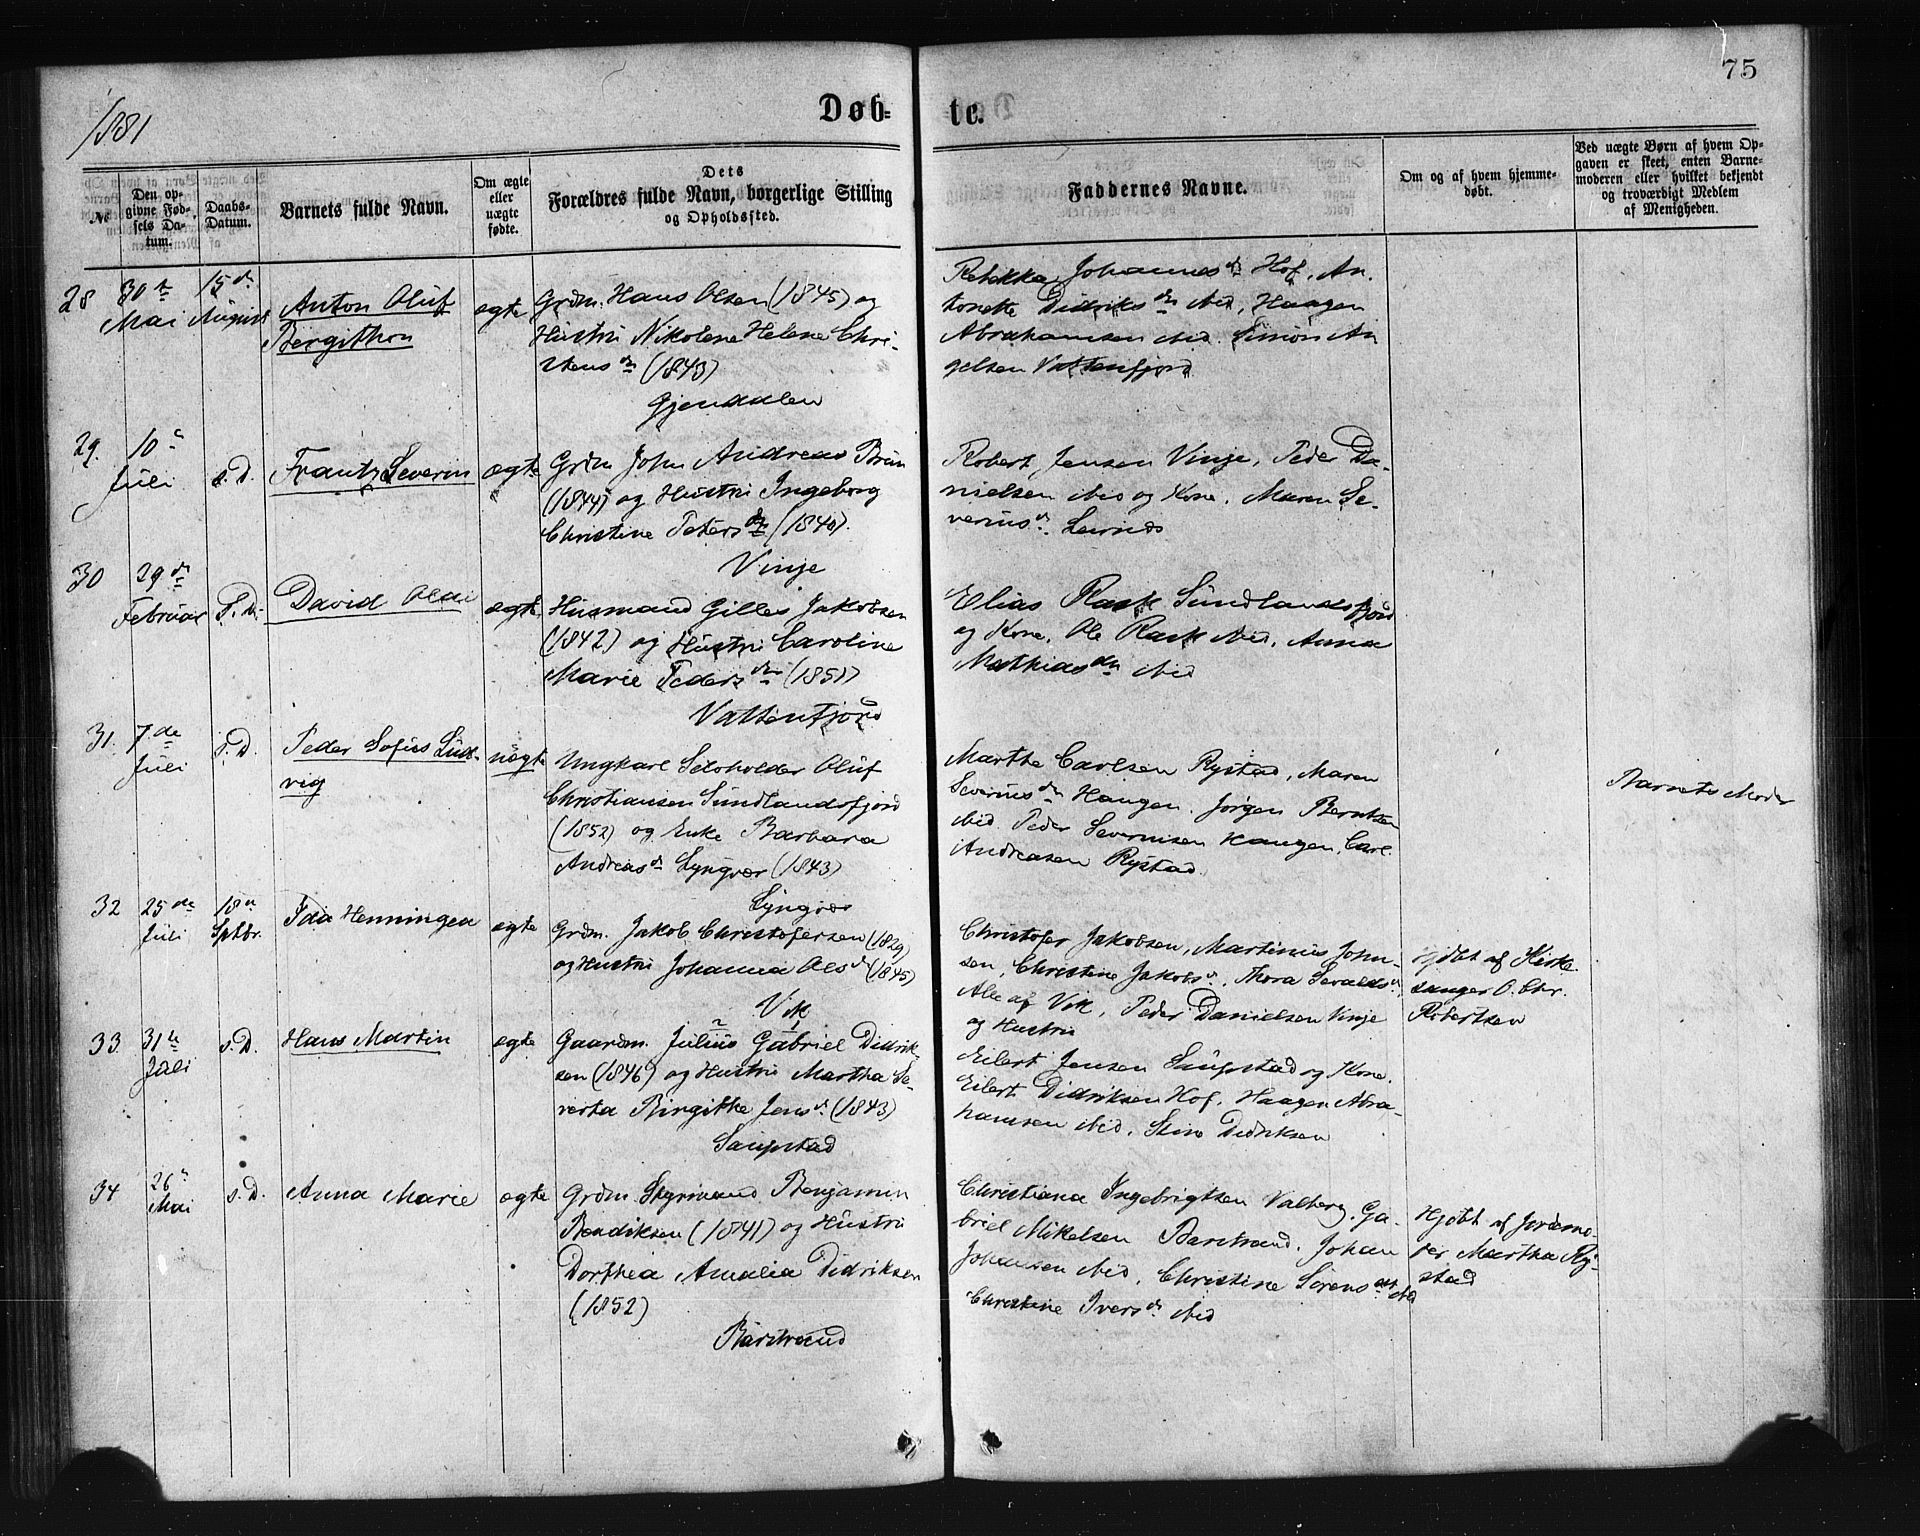 1881
Døb-
te.
75
№
Den opgivne Fødsels Datum.
Daabs-Datum.
Barnets fulde Navn.
Om ægte eller uægte fødte.
Dets Forældres fulde Navn, borgerlige Stilling og Opholdssted.
Faddernes Navne.
Om og af hvem hjemmedøbt.
Ved uægte Børn af hvem Opgaven er skeet, enten Barnemoderen eller hvilket bekjendt og troværdigt Medlem af Menigheden.
28
30te Mai
15de August
Anton Oluf
Bergithon
ægte
Grdm. Hans Olsen (1845) og
Hustru Nikolene Helene Chri-
stensdr (1843)
Gjerdalen
Rebekka Johannesdr Hof, An-
tonette Didriksdr ibid, Haagen
Abrahamsen ibid. Simon An
gelsen Vattenfjord
29.
10de Juli
s. D.
Frantz Severin
ægte
Grdm John Andreas Brun
(1844) og Hustru Ingeborg
Christine Petersdr (1840).
Vinje
Robert Jensen Vinje, Peder Da-
nielsen ibid og Kone, Maren Se-
verinsdr
30
29de Februar
s. D.
David Olai
ægte
Husmand Gilles Jakobsen
(1842) og Hustru Caroline
Marie Pedersdr (1851)
Vattenfjord
Elias Rask Sundlandsfjord
og Kone, Ole Rask ibid, Anna
Mathiasdr ibid
31.
7de Juli
s. D.
Peder Sofus Lud-
vig
uægte
Ungkarl Selvholder Oluf
Christiansen Sundlandsfjord
(1852) og Enke Barbara
Andreasdr Lyngvær (1843)
Lyngvær
Marthe Carlsen Rystad, Maren
Severinsdr Haugen. Jørgen Berntsen
ibid. Peder Severinsen Haugen, Carl
Andreasen Rystad.
Barnets Moder
32
25de Juli
18de Sptbr.
Ida Henningea
ægte
Grdm. Jakob Christofersen (1829)
og Hustru Johanna Olsdr (1845)
Vik
Christofer Jakobsen, Martinus John-
sen, Christine Jakobsdr, Thora Seralsdr,
Alle af Vik, Peder Danielsen Vinje
og Hustru
Hjdbt af Kirke
sanger O. Chr.
Robertsen
33
31te Juli
s. D.
Hans Martin
ægte
Gaardm. Julius Gabriel Didrik-
sen (1846) og Hustru Martha Se-
verta Birgitte Jensdr (1843)
Saupstad
Eilert Jensen Saupstad og Kone.
Eilert Didriksen Hof, Haagen Abra-
hamsen ibid, Stine Didriksen
34
26de Mai
s. D.
Anna Marie
ægte
Grdm. Styrmand Benjamin
Bendiksen (1841) og Hustru
Dorthea Amalia Didriksen
(1852)
Barstrand
Christiana Ingebrigtsen Valberg, Ga-
briel Mikelsen Barstrand, Johan
Johansen ibid, Christine Sørensdtr ibid
Christine Iversdr ibid
Hjdbt af Jordemo-
der Martha Ry-
stad